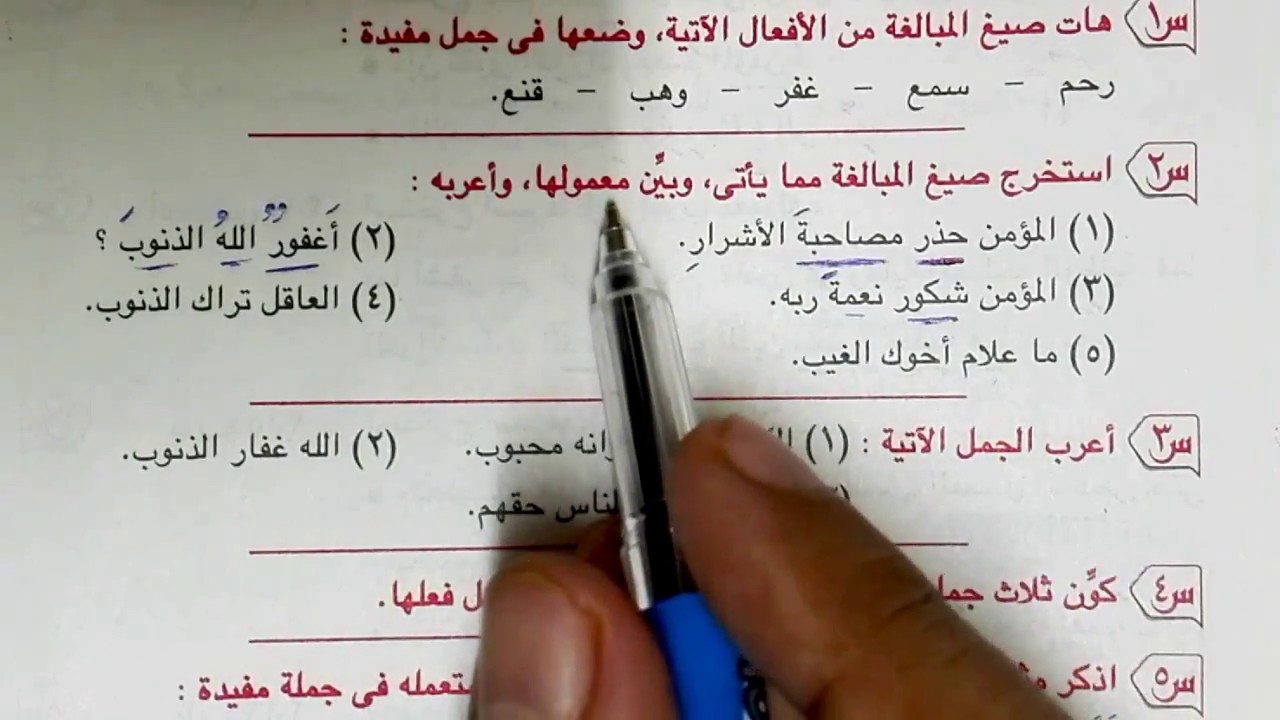 س١ هات صيغ المبالغة من الأفعال الآتية، وضعها فى جمل مفيدة :
رحم – سمع – غفر – وهب – قنع.
س٢ استخرج صيغ المبالغة مما يأتى، وبيِّن معمولها، وأعربه :
(١) المؤمن حذر مصاحبةَ الأشرارِ. (٢) أَغفورٌ اللهُ الذنوبَ ؟
(٣) المؤمن شكور نعمةَ ربه. (٤) العاقل تراك الذنوب.
(٥) ما علام أخوك الغيب.
س٣ أعرب الجمل الآتية : (١) محبوب. (٢) الله غفار الذنوب.
حقهم.
س٤ كوِّن ثلاث فعلها.
س٥ اذكر فى جملة مفيدة :